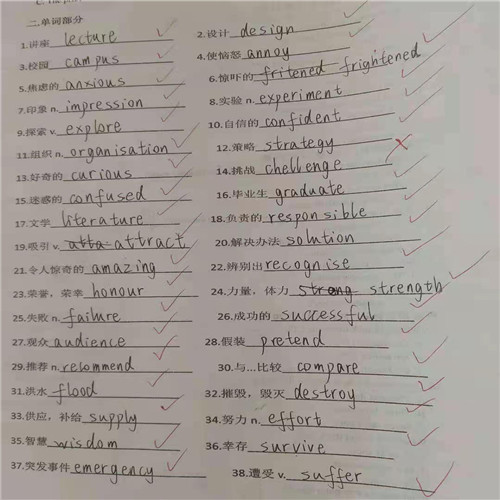 二.单词部分
1.讲座 lecture 2.设计 design
3.校园 campus 4.使恼怒 annoy
5.焦虑的 anxious 6.惊吓的 fritened frightened
7.印象 n. impression 8.实验 n. experiment
9.探索 v. explore 10.自信的 confident
11.组织 n. organisation 12.策略 strategy
13.好奇的 curious 14.挑战 chellenge
15.迷惑的 confused 16.毕业生 graduate
17.文学 literature 18.负责的 responsible
19.吸引 v. atta attract 20.解决办法 solution
21.令人惊奇的 amazing 22.辨别出 recognise
23.荣誉，荣幸 honour 24.力量，体力 strong strength
25.失败 n. failure 26.成功的 successful
27.观众 audience 28.假装 pretend
29.推荐 n. relommend 30.与…比较 compare
31.洪水 flood 32.摧毁，毁灭 destroy
33.供应，补给 supply 34.努力 n. effort
35.智慧 wisdom 36.幸存 survive
37.突发事件 emergency 38.遭受 v. suffer